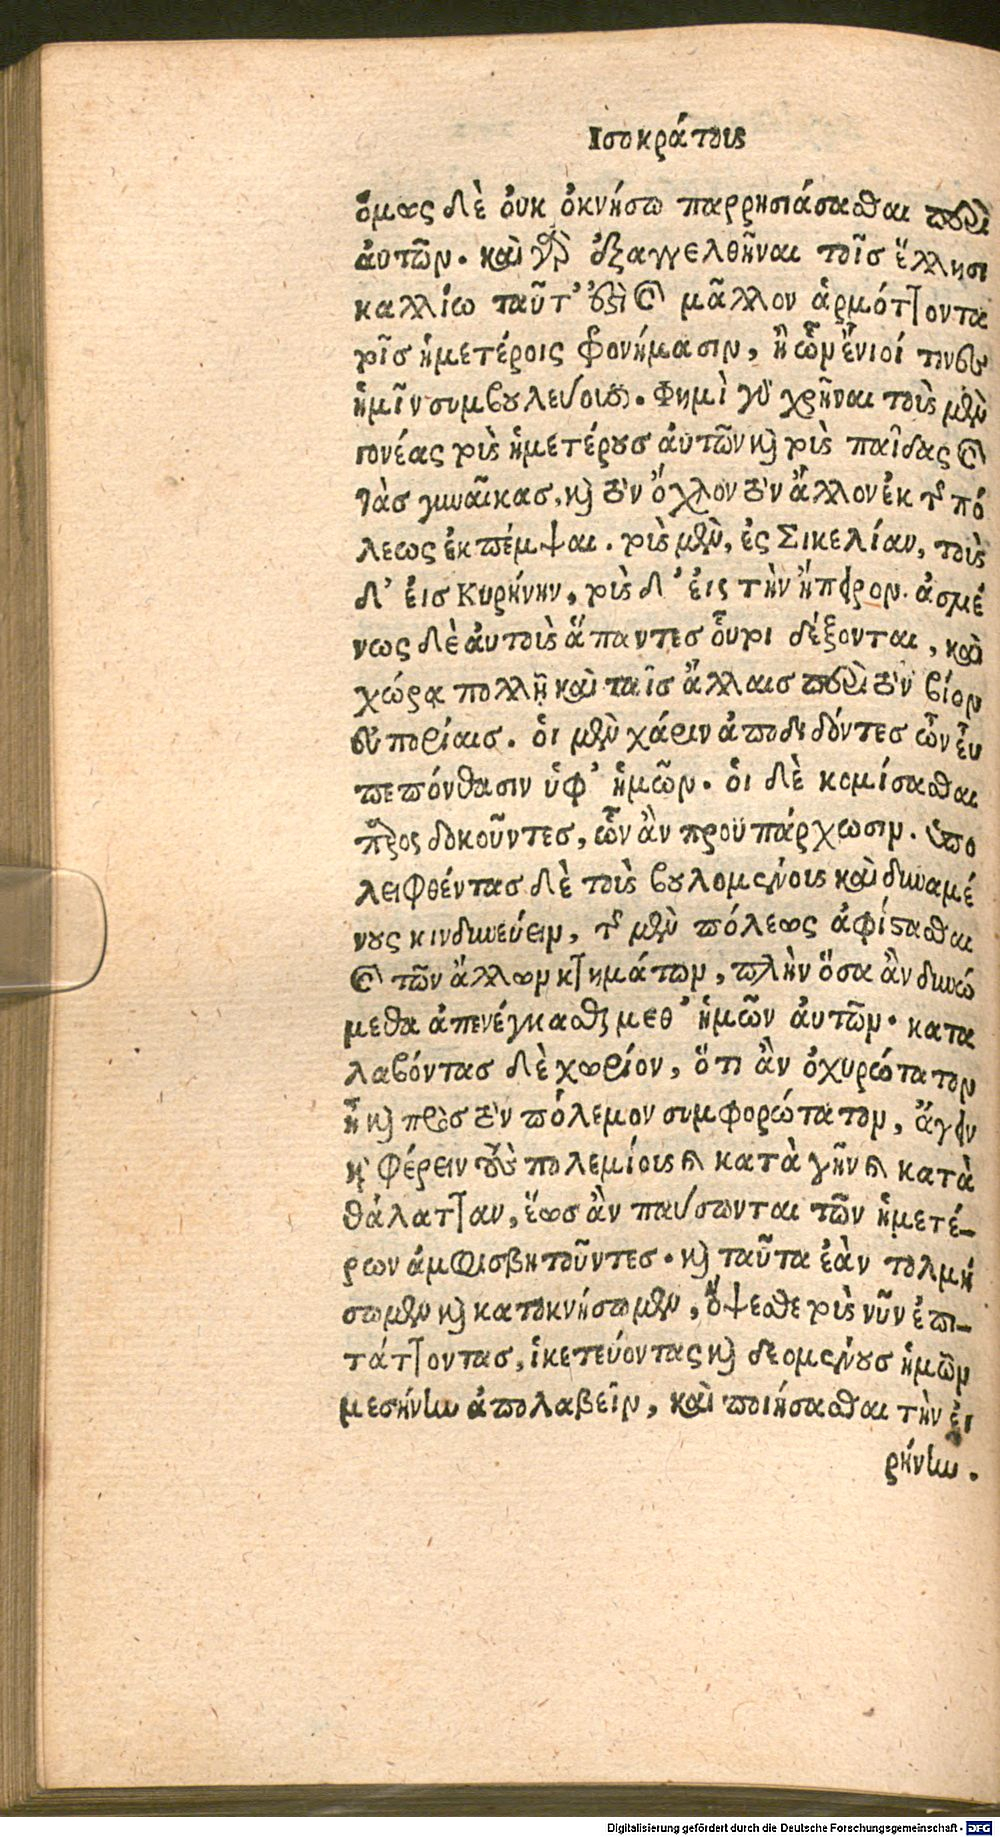 Ισοκράτους
ὅμως δὲ ὀυκ ὀκνήσω παρρησιάσασθαι περὶ
ἀυτῶν. καὶ γὰρ ἐξαγγελθῆναι τοῖσ ἕλλησι
καλλίω ταῦτ' ἐστὶ καὶ μᾶλλον ἁρμόττοντα
τοῖσ ἡμετέροις φρονήμασιν, ἢ ὧν ἔνιοί τινες
ἡμῖν συμβουλεύουσι. Φημὶ γὰρ χρῆναι τοὺς μὲν
γονέας τοὺς ἡμετέρουσ ἀυτῶν καὶ τοὺς παῖδας καὶ
τὰσ γυναῖκασ, καὶ τὸν ὄχλον τὸν ἄλλον ἐκ τῆς πό
λεως ἐκπέμψαι. τοὺς μὲν, ἐς Σικελίαν, τοὺς
δ' ἐισ Κυρήνην, τοὺς δ' ἐις τὴν ἤπειρον. ἀσμέ
νως δὲ ἀυτοὺς ἅπαντεσ οὗτοι δέξονται, καὶ
χώρᾳ πολλῇ καὶ ταῖσ ἄλλαισ περὶ τὸν βίον
ἐυπορίαισ. ὁι μὲν χάριν ἀποδιδόντεσ ὧν ἐυ
πεπόνθασιν ὑφ' ἡμῶν. ὁι δὲ κομίσασθαι
προσδοκοῦντεσ, ὧν ἂν προϋπάρχωσιν. ὑπο
λειφθέντασ δὲ τοὺς βουλομένους καὶ δυναμέ
νους κινδυνεύειν, τῆς μὲν πόλεως ἀφίστασθαι
καὶ τῶν ἄλλων κτημάτων, πλὴν ὅσα ἂν δυνώ
μεθα ἀπενέγκασθαι μεθ' ἡμῶν ἀυτῶν. κατα
λαβόντασ δὲ χωρίον, ὅτι ἂν ὀχυρώτατον
ᾖ καὶ πρὸς τὸν πόλεμον συμφορώτατον, ἄγειν
καὶ φέρειν τοὺς πολεμίους καὶ κατὰ γῆν καὶ κατὰ
θάλατταν, ἕωσ ἂν παύσωνται τῶν ἡμετέ-
ρων ἀμφισβητοῦντεσ. καὶ ταῦτα ἐὰν τολμή
σωμεν καὶ κατοκνήσωμεν, ὄψεσθε τοὺς νῦν ἐπι-
τάττοντασ, ἱκετεύοντας καὶ δεομένουσ ἡμῶν
μεσήνην ἀπολαβεῖν, καὶ ποιήσασθαι τὴν ἐι
ρήνην.
Digitalisierung gefördert durch die Deutsche Forschungsgemeinschaft - DFG